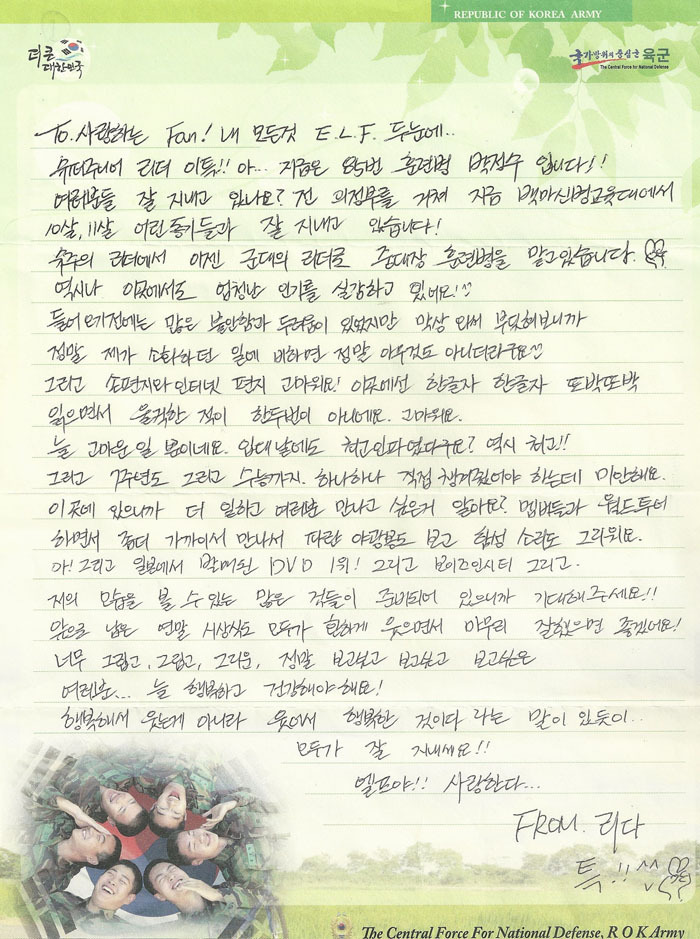 REPUBLIC OF KOREA ARMY
더 큰 대한민국
국가방위의 중심군 육군
The Central Force for National Defense
To. 사랑하는 Fan! 내 모든것 E.L.F. 두눈에..
슈퍼주니어 리더 이특!! 아... 지금은 85번 훈련병 박정수 입니다!!
여러분들 잘 지내고 있나요? 전 의정부를 거쳐 지금 백마신병교육대에서
10살, 11살 어린 동기들과 잘 지내고 있습니다!
슈주의 리더에서 이젠 군대의 리더로 중대장 훈련병을 맡고있습니다.
역시나 이곳에서도 엄청난 인기를 실감하고 있어요!^^
들어오기전에는 많은 불안함과 두려움이 있었지만 막상 와서 부딪혀보니까
정말 제가 소화하던 일에 비하면 정말 아무것도 아니더라구요^^
그리고 손편지와 인터넷 편지 고마워요! 이곳에선 한글자 한글자 또박또박
읽으면서 울컥한 적이 한두번이 아니에요. 고마워요.
늘 고마운 일 뿐이네요. 입대날에도 최고인파였다구요? 역시 최고!!
그리고 7주년도 그리고 수능까지. 하나하나 직접 챙겨줬어야 하는데 미안해요.
이곳에 있으니까 더 일하고 여러분 만나고 싶은거 알아요? 멤버들과 월드투어
하면서 좀더 가까이서 만나서 파란 야광봉도 보고 함성 소리도 그리워요.
아! 그리고 일본에서 발매된 DVD 1위! 그리고 보이즈인시티 그리고.
저의 모습을 볼 수 있는 많은 것들이 준비되어 있으니까 기대해주세요!!
앞으로 남은 연말 시상식도 모두가 환하게 웃으면서 마무리 잘했으면 좋겠어요!
너무 그립고, 그립고, 그리운, 정말 보고싶고 보고싶고 보고싶은
여러분... 늘 행복하고 건강해야해요!
행복해서 웃는게 아니라 웃어서 행복한 것이다 라는 말이 있듯이..
모두가 잘 지내세요!!
엘프야!! 사랑한다...
FROM. 리다
특!! ^^
The Central Force For National Defense, R O K Army